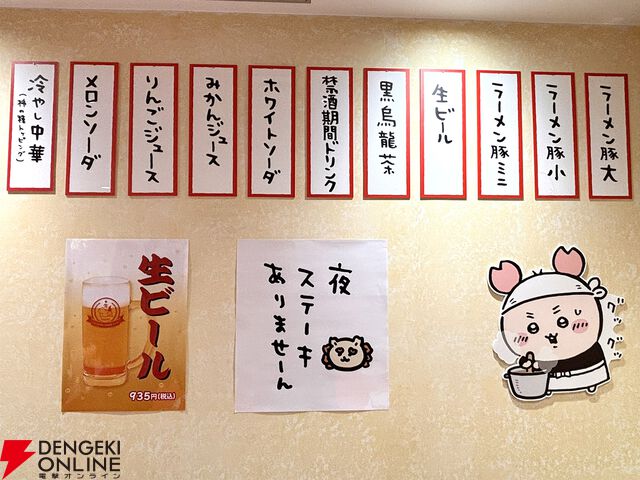 ラーメン豚大
ラーメン豚小
ラーメン豚ミニ
生ビール
黒烏龍茶
禁酒期間ドリンク
ホワイトソーダ
みかんジュース
りんごジュース
メロンソーダ
冷やし中華
生ビール
935円(税込)
夜
ステーキ
ありませーん
グッ
グッ
DENGEKI
ONLINE
電撃オンライン